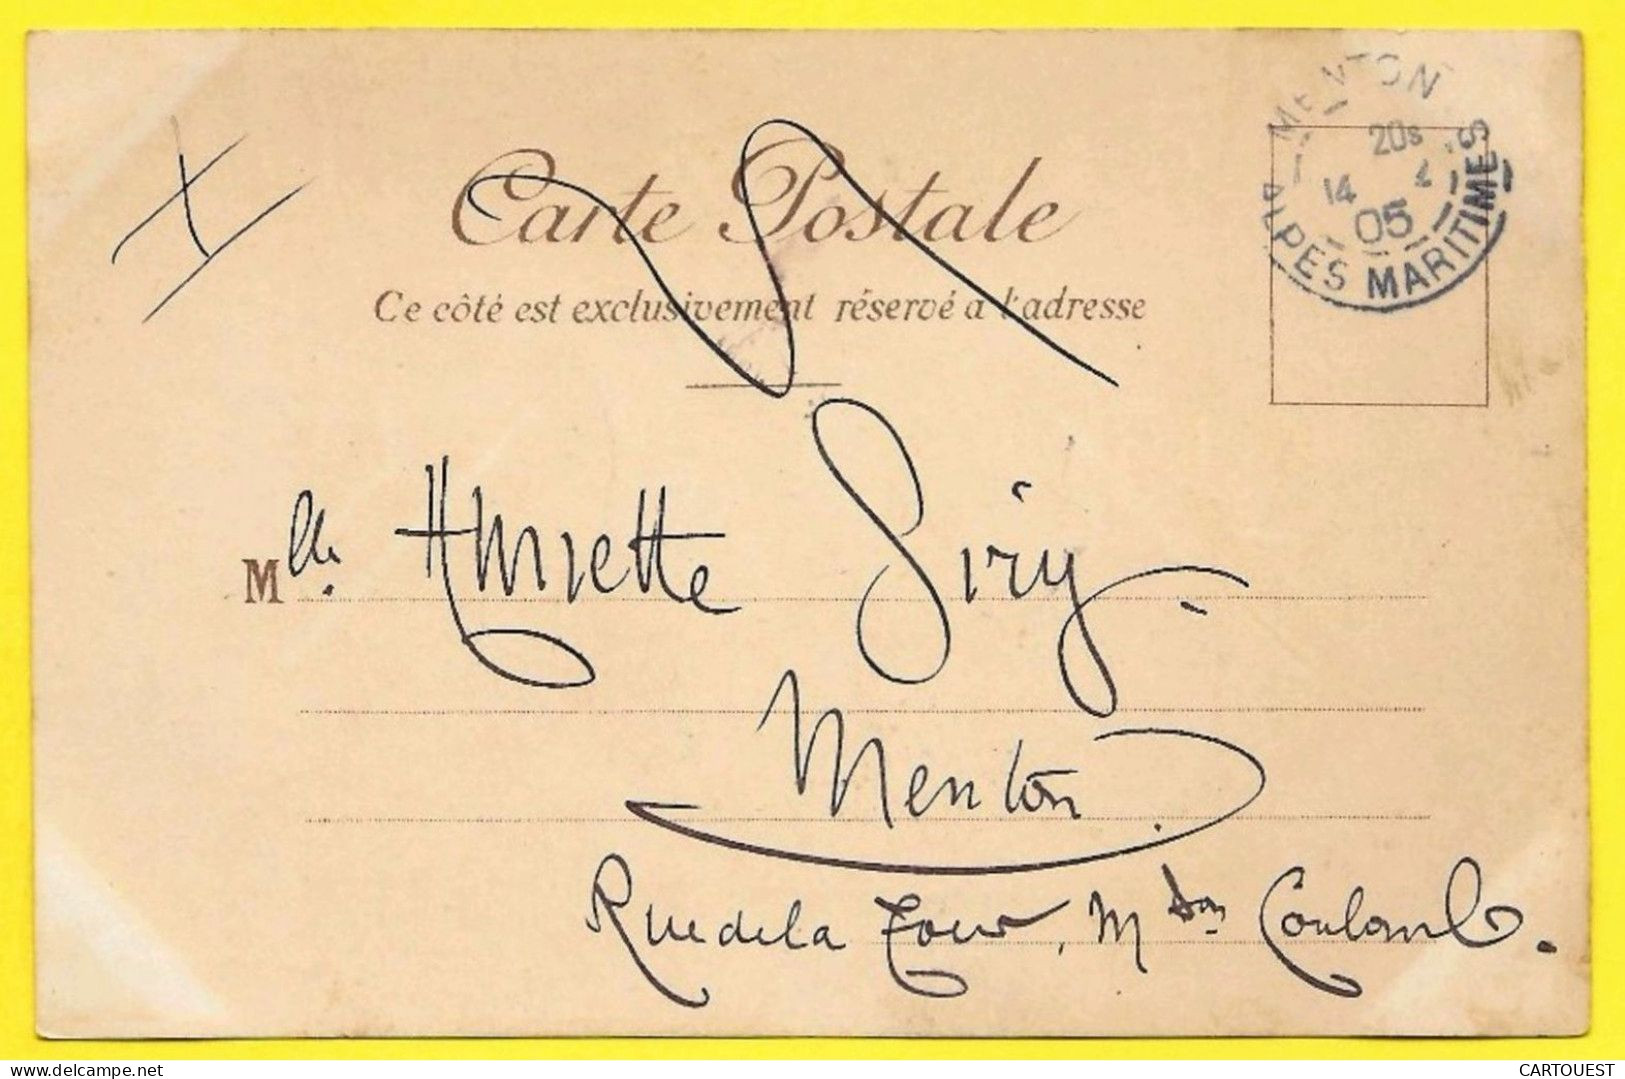 Carte Postale
Ce côté est exclusivement réservé a l'adresse
MENTON
20s
14 4
05
ALPES MARITIMES
Mlle Henriette Siry
Menton
Rue de la Tour, Mson Coulomb.
delcampe.net
CARTOUEST